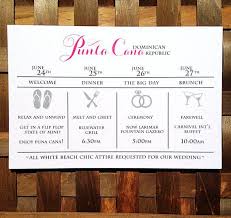 Punta Cana DOMINICAN
REPUBLIC
JUNE JUNE JUNE JUNE
24TH 25TH 26TH 27TH
WELCOME DINNER THE BIG DAY BRUNCH
RELAX AND UNWIND MEET AND GREET CEREMONY FAREWELL
GET IN A FLIP FLOP BLUEWATER NOW LARIMAR CARNIVAL INT'L
STATE OF MIND GRILL FOUNTAIN GAZEBO BUFFET
ENJOY PUNTA CANA! 6:30PM 5:00PM 10:00AM
*ALL WHITE BEACH CHIC ATTIRE REQUESTED FOR OUR WEDDING*